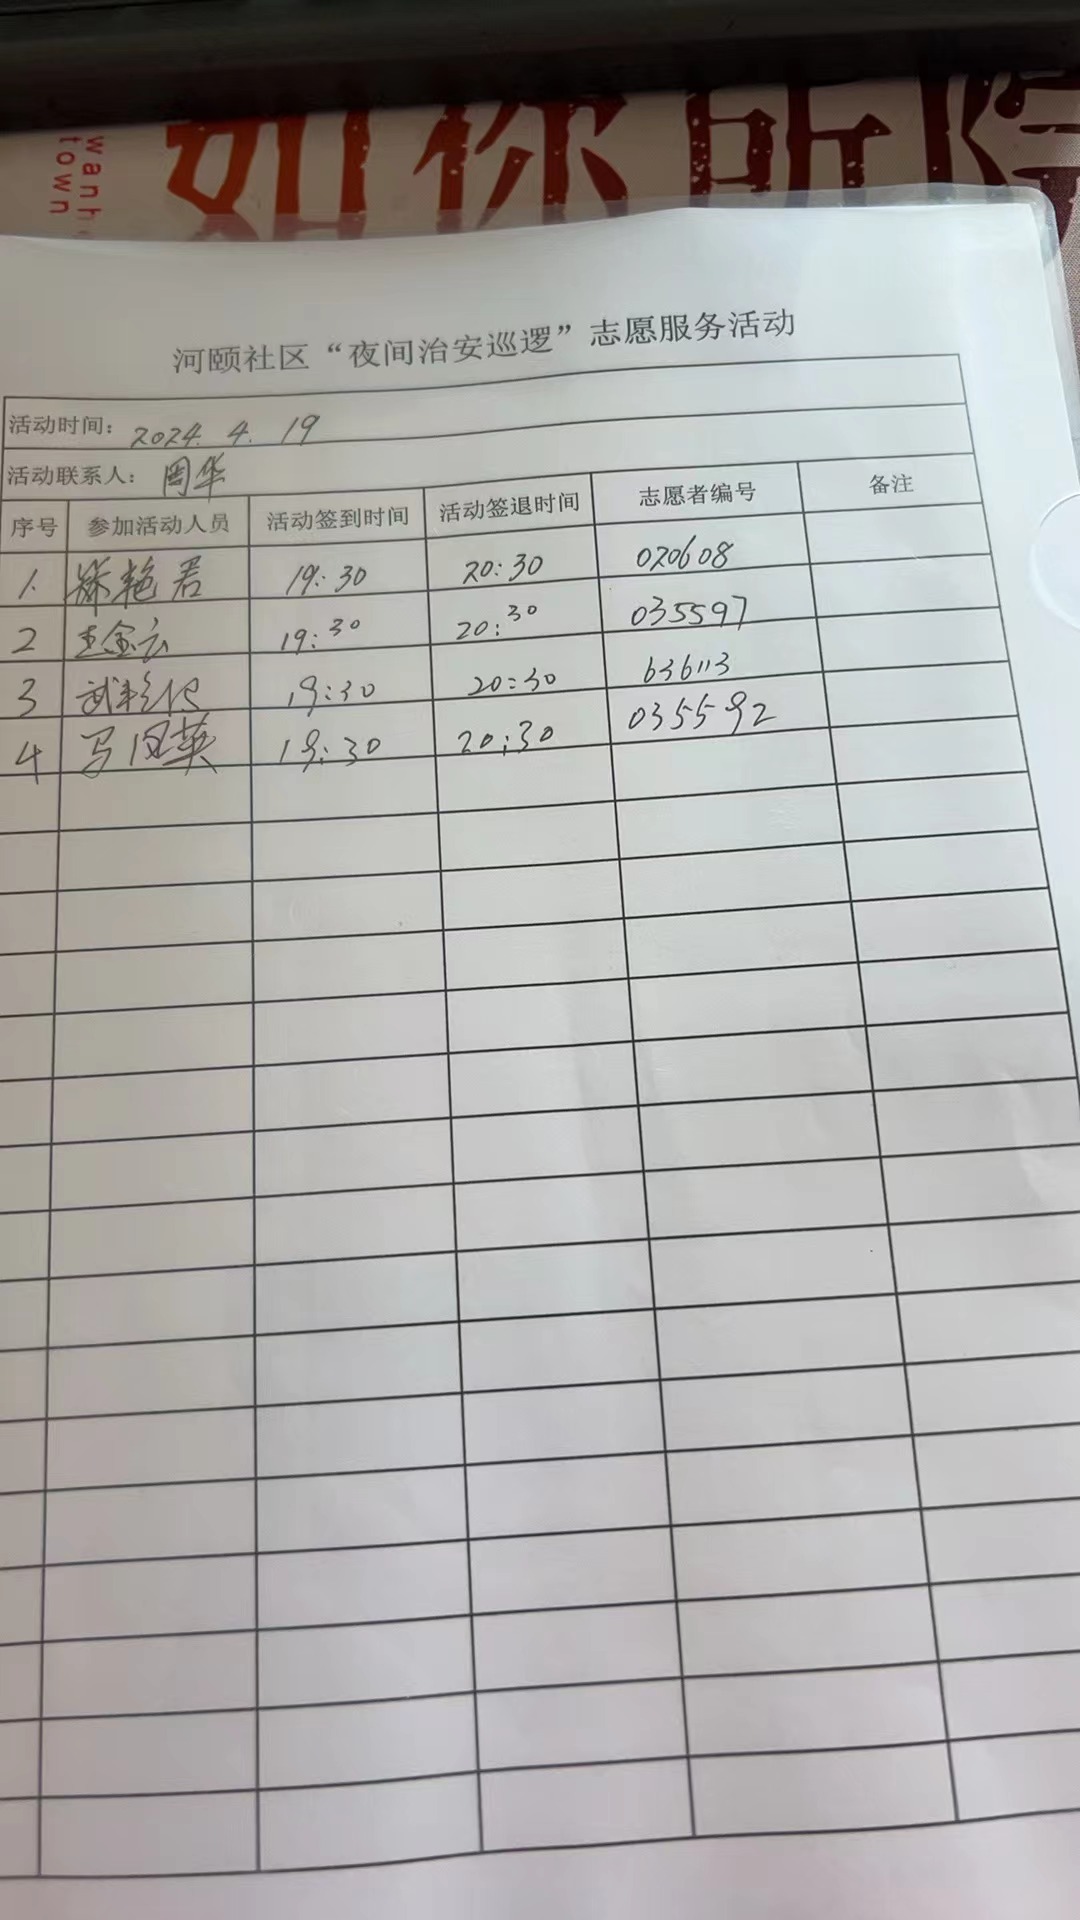 wanh
town
如你所
河颐社区“夜间治安巡逻”志愿服务活动
活动时间：2024.4.19
活动联系人：周华
序号 参加活动人员 活动签到时间 活动签退时间 志愿者编号 备注
1. 艳君 19:30 20:30 020608
2 王金云 19:30 20:30 035597
3 武 19:30 20:30 636113
4 马凤英 19:30 20:30 035592